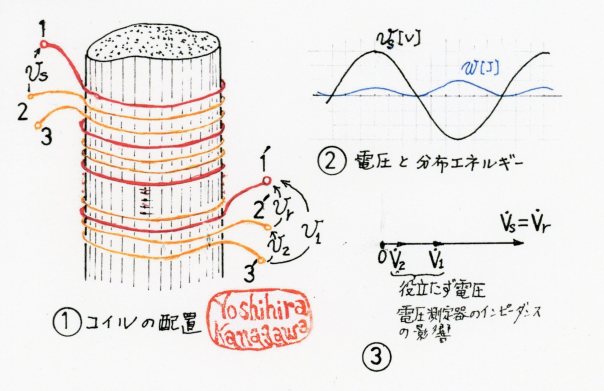 1
υs
2
3
1'
2'
υr
υ2
υ1
3'
① コイルの配置
Yoshihira
Kanagawa
υs[V]
w[J]
② 電圧と分布エネルギー
V̇s=V̇r
0
V̇2
V̇1
役立たず電圧
電圧測定器のインピーダンス
の影響
③